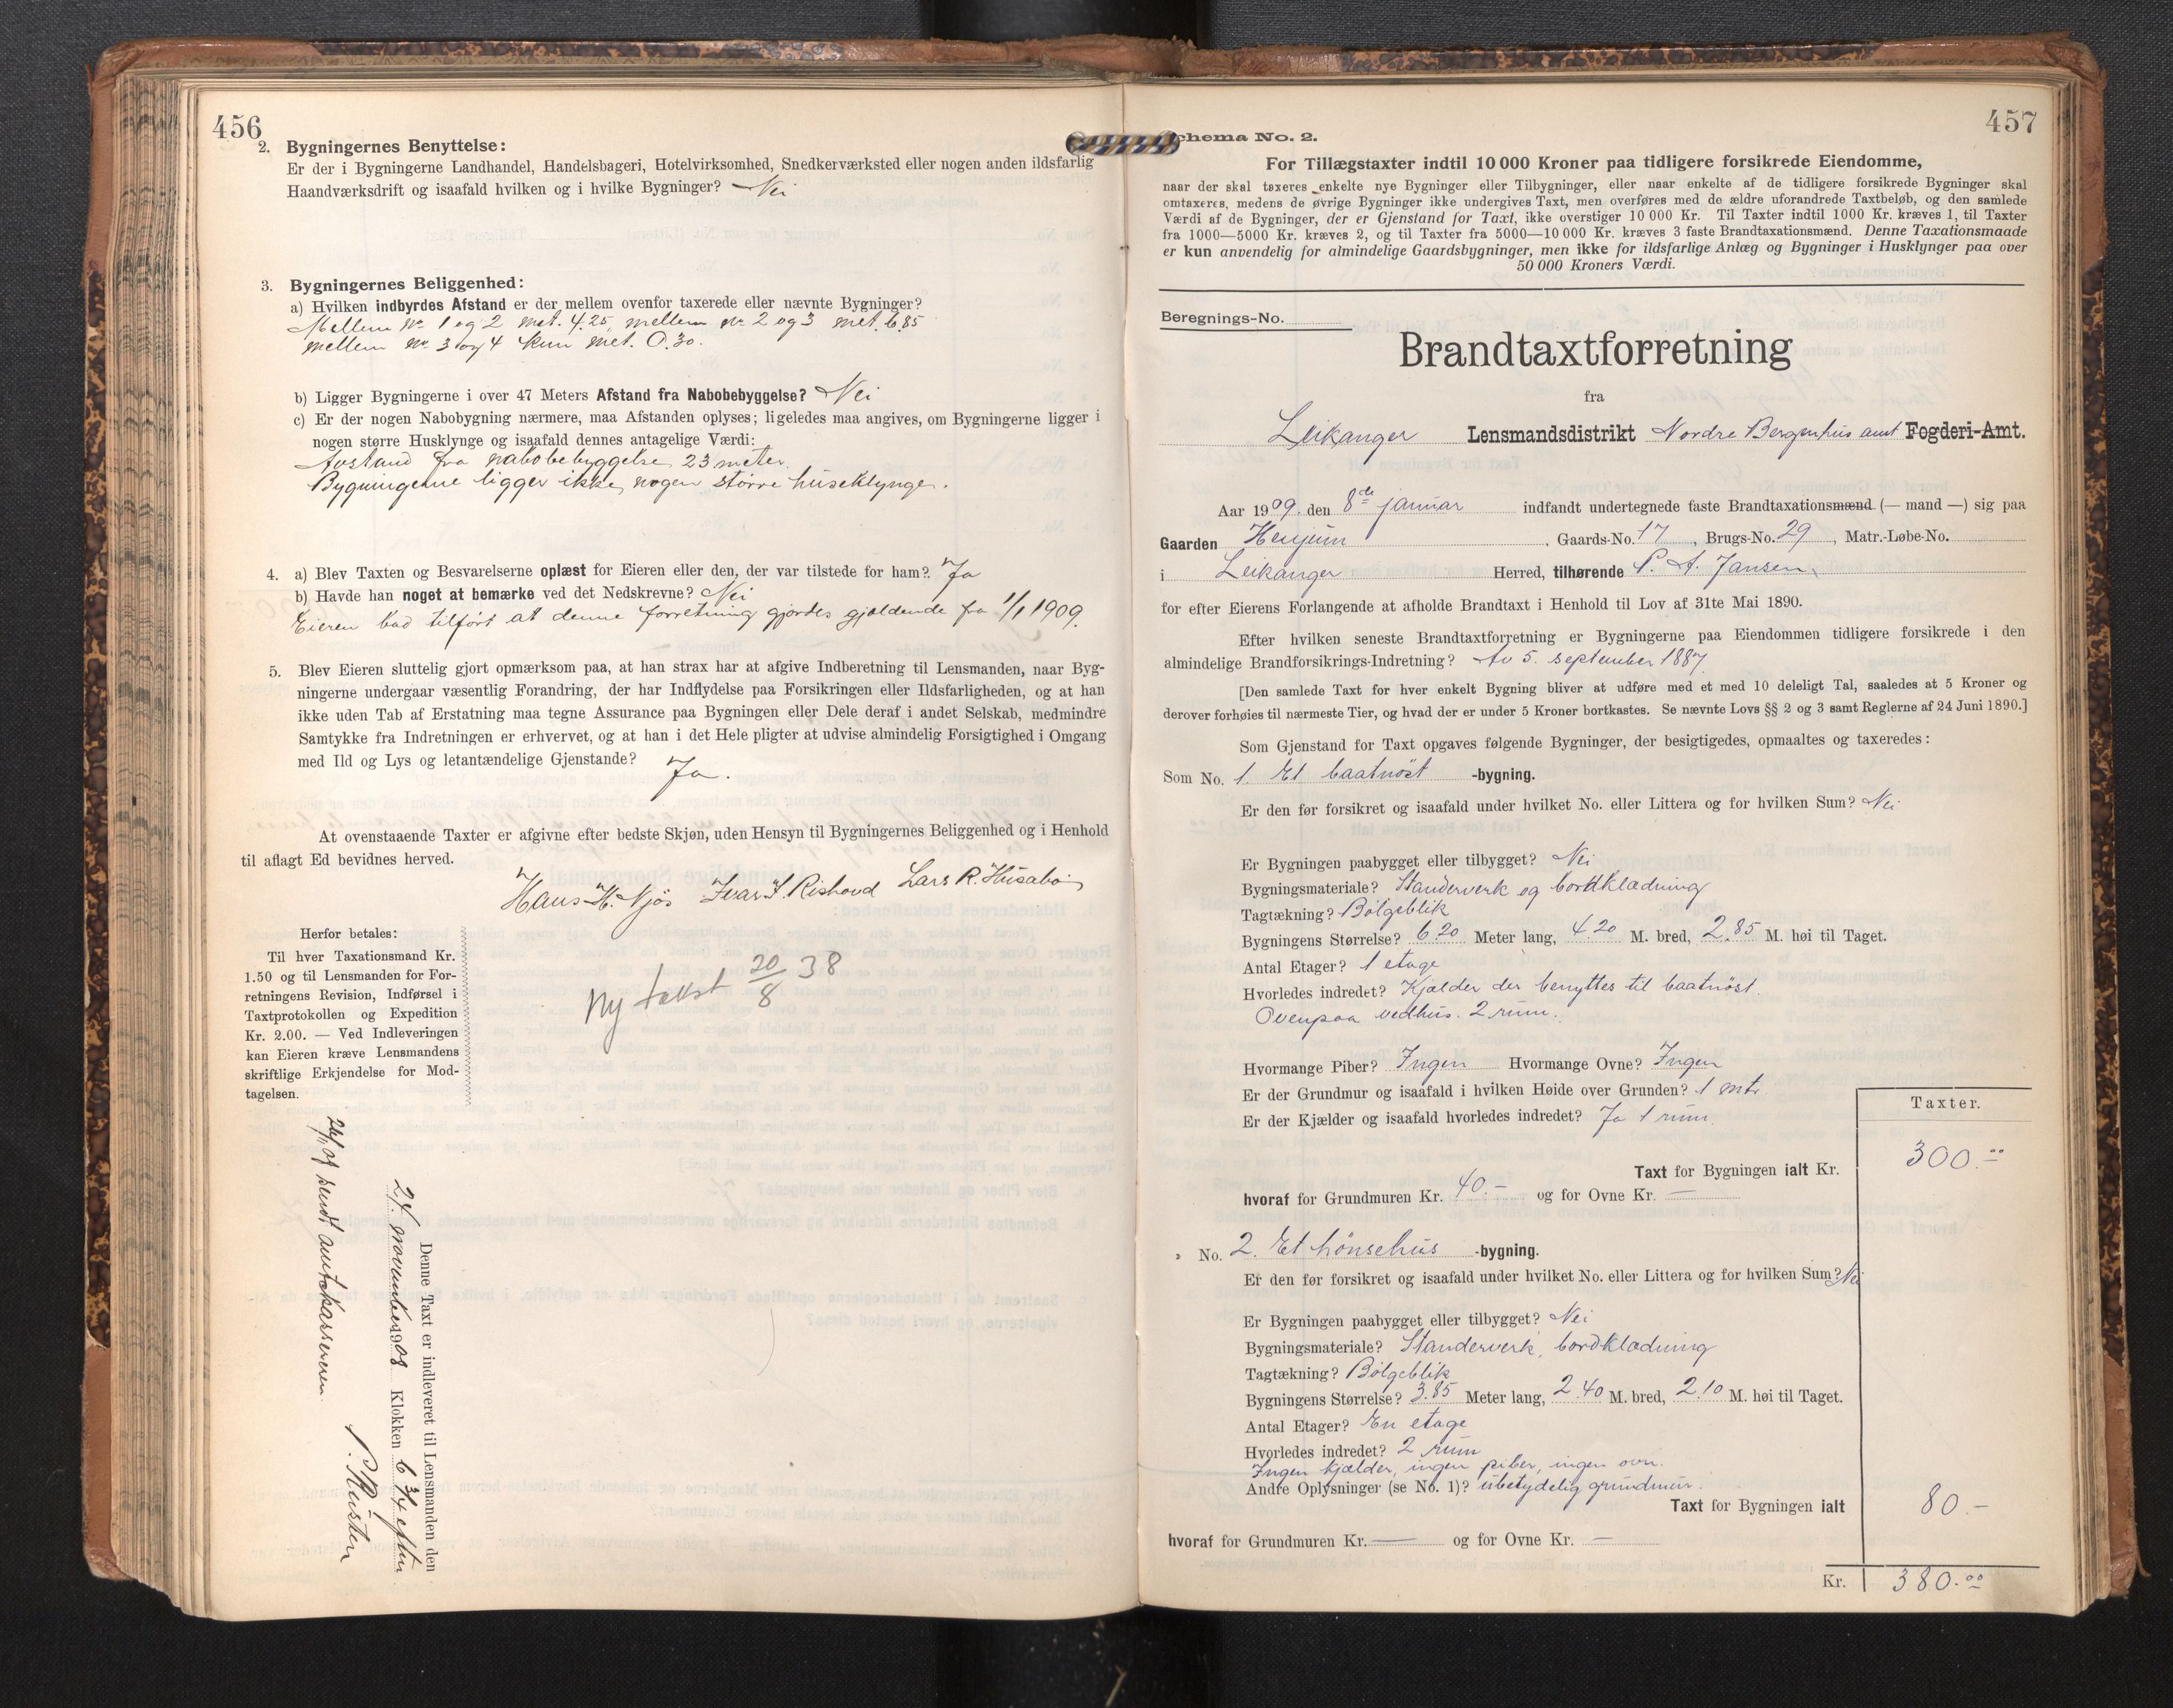 456
2. Bygningernes Benyttelse:
Er der i Bygningerne Landhandel, Handelsbageri, Hotelvirksomhed, Snedkerværksted eller nogen anden ildsfarlig
Haandværksdrift og isaafald hvilken og i hvilke Bygninger? Nei
3. Bygningernes Beliggenhed:
a) Hvilken indbyrdes Afstand er der mellem ovenfor taxerede eller nævnte Bygninger?
Mellem No 1 og 2 met. 4.25, mellem No 2 og 3 met. 6.85
mellem No 3 og 4 kun met. 0.30.
b) Ligger Bygningerne i over 47 Meters Afstand fra Nabobebyggelse? Nei
c) Er der nogen Nabobygning nærmere, maa Afstanden oplyses; ligeledes maa angives, om Bygningerne ligger i
nogen større Husklynge og isaafald dennes antagelige Værdi:
Avstand fra nabobebyggelse 23 meter.
Bygningerne ligger ikke nogen större huseklynge.
4. a) Blev Taxten og Besvarelserne oplæst for Eieren eller den, der var tilstede for ham? Ja
b) Havde han noget at bemærke ved det Nedskrevne? Nei
Eieren bad tilført at denne forretning gjordes gjældende fra 1/1 1909.
5. Blev Eieren sluttelig gjort opmærksom paa, at han strax har at afgive Indberetning til Lensmanden, naar Byg-
ningerne undergaar væsentlig Forandring, der har Indflydelse paa Forsikringen eller Ildsfarligheden, og at han
ikke uden Tab af Erstatning maa tegne Assurance paa Bygningen eller Dele deraf i andet Selskab, medmindre
Samtykke fra Indretningen er erhvervet, og at han i det Hele pligter at udvise almindelig Forsigtighed i Omgang
med Ild og Lys og letantændelige Gjenstande? Ja.
At ovenstaaende Taxter er afgivne efter bedste Skjøn, uden Hensyn til Bygningernes Beliggenhed og i Henhold
til aflagt Ed bevidnes herved.
Hans H. Njøs Ivar I. Rishovd Lars R. Husabø
Herfor betales:
Til hver Taxationsmand Kr.
1.50 og til Lensmanden for For-
retningens Revision, Indførsel i
Taxtprotokollen og Expedition
Kr. 2.00. — Ved Indleveringen
kan Eieren kræve Lensmandens
skriftlige Erkjendelse for Mod-
tagelsen.
Ny takst 20/8 38
Denne Taxt er indleveret til Lensmanden den
24 november 1908 Klokken 6 3/4 eftm
sendt amtskassereren.
457
Schema No. 2.
For Tillægstaxter indtil 10 000 Kroner paa tidligere forsikrede Eiendomme,
naar der skal taxeres enkelte nye Bygninger eller Tilbygninger, eller naar enkelte af de tidligere forsikrede Bygninger skal
omtaxeres, medens de øvrige Bygninger ikke undergives Taxt, men overføres med de ældre uforandrede Taxtbeløb, og den samlede
Værdi af de Bygninger, der er Gjenstand for Taxt, ikke overstiger 10 000 Kr. Til Taxter indtil 1000 Kr. kræves 1, til Taxter
fra 1000—5000 Kr. kræves 2, og til Taxter fra 5000—10 000 Kr. kræves 3 faste Brandtaxationsmænd. Denne Taxationsmaade
er kun anvendelig for almindelige Gaardsbygninger, men ikke for ildsfarlige Anlæg og Bygninger i Husklynger paa over
50 000 Kroners Værdi.
Beregnings-No.
Brandtaxtforretning
fra
Leikanger Lensmandsdistrikt Nordre Bergenhus amt Fogderi-Amt.
Aar 1909. den 8de januar indfandt undertegnede faste Brandtaxationsmænd (— mand —) sig paa
Gaarden Henjum, Gaards-No. 17, Brugs-No. 29, Matr.-Løbe-No.
i Leikanger Herred, tilhørende P. A. Jansen,
for efter Eierens Forlangende at afholde Brandtaxt i Henhold til Lov af 31te Mai 1890.
Efter hvilken seneste Brandtaxtforretning er Bygningerne paa Eiendommen tidligere forsikrede i den
almindelige Brandforsikrings-Indretning? Av 5. september 1887
[Den samlede Taxt for hver enkelt Bygning bliver at udføre med et med 10 deleligt Tal, saaledes at 5 Kroner og
derover forhøies til nærmeste Tier, og hvad der er under 5 Kroner bortkastes. Se nævnte Lovs §§ 2 og 3 samt Reglerne af 24 Juni 1890.]
Som Gjenstand for Taxt opgaves følgende Bygninger, der besigtigedes, opmaaltes og taxeredes:
Som No. 1. Et baatnöst -bygning.
Er den før forsikret og isaafald under hvilket No. eller Littera og for hvilken Sum? Nei
Er Bygningen paabygget eller tilbygget? Nei
Bygningsmateriale? Standerverk og bordklædning
Tagtækning? Bölgeblik
Bygningens Størrelse? 6.20 Meter lang, 4.20 M. bred, 2.85 M. høi til Taget.
Antal Etager? 1 etage
Hvorledes indredet? Kjælder der benyttes til baatnöst.
Ovenpaa vedhus. 2 rum.
Hvormange Piber? Ingen Hvormange Ovne? Ingen
Er der Grundmur og isaafald i hvilken Høide over Grunden? 1 mtr.
Er der Kjælder og isaafald hvorledes indredet? Ja 1 rum.
Taxter.
Taxt for Bygningen ialt Kr. 300.00
hvoraf for Grundmuren Kr. 40.- og for Ovne Kr. —
» No. 2. Et hönsehus -bygning.
Er den før forsikret og isaafald under hvilket No. eller Littera og for hvilken Sum? Nei
Er Bygningen paabygget eller tilbygget? Nei
Bygningsmateriale? Standerverk, bordklædning
Tagtækning? Bölgeblik
Bygningens Størrelse? 3.85 Meter lang, 2.40 M. bred, 2.10 M. høi til Taget.
Antal Etager? En etage
Hvorledes indredet? 2 rum
Ingen kjælder, ingen piber, ingen ovn.
Andre Oplysninger (se No. 1)? ubetydelig grundmur.
Taxt for Bygningen ialt 80.-
hvoraf for Grundmuren Kr. — og for Ovne Kr. —
Kr. 380.00